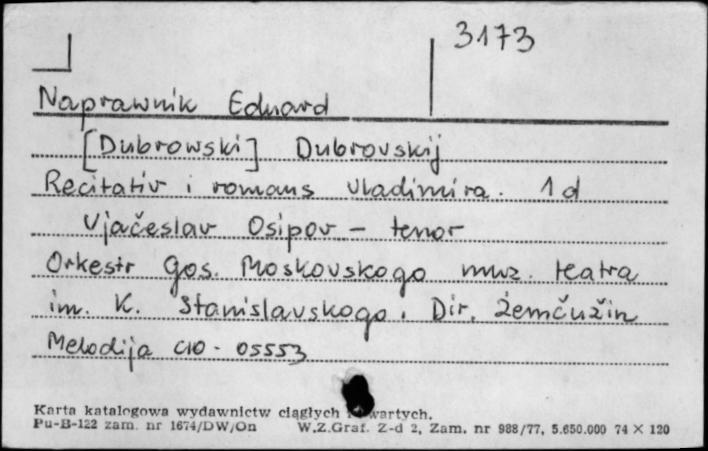 3173
Naprawnik Eduard
[Dubrowski] Dubrovskij
Recitativ i romans Vladimira. 1d
Vjačeslav Osipov – tenor
Orkestr Gos. Moskovskogo muz. teatra
im. K. Stanislavskogo. Dir. Žemčužin
Melodija C10 - 05553
Karta katalogowa wydawnictw ciągłych i zwartych.
Pu-B-122 zam. nr 1674/DW/On W.Z.Graf. Z-d 2, Zam. nr 988/77, 5.650.000 74 × 120